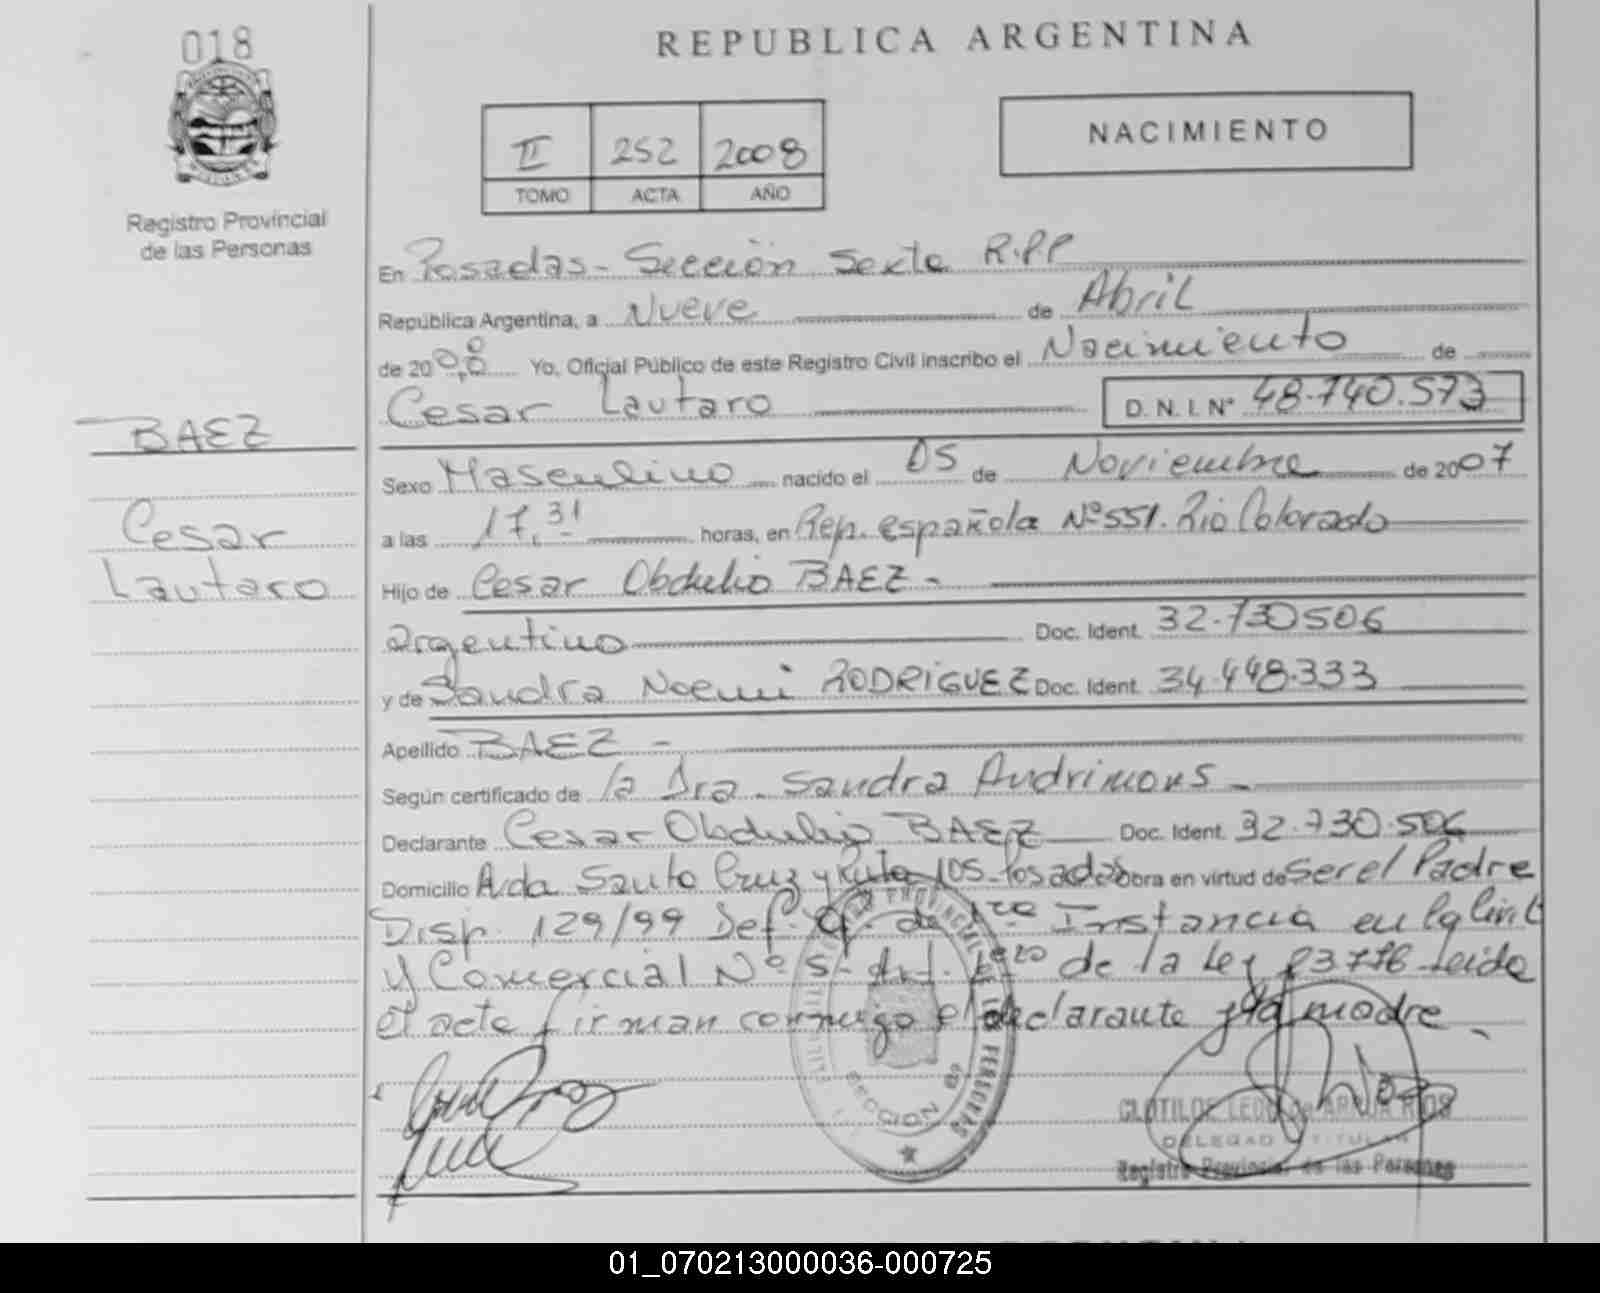 018
REPUBLICA ARGENTINA
NACIMIENTO
II 252 2008
TOMO ACTA AÑO
Registro Provincial
de las Personas
En Posadas - Sección Sexta R.P.P
República Argentina, a Nueve de Abril
de 2008 Yo, Oficial Público de este Registro Civil inscribo el Nacimiento de
Cesar Lautaro D.N.I. Nº 48.740.573
BAEZ
Cesar
Lautaro
Sexo Masculino nacido el 05 de Noviembre de 2007
a las 17.31 horas, en Rep. española Nº 551. Rio Colorado
Hijo de Cesar Obdulio BAEZ -
argentino Doc. Ident. 32.730506
y de Sandra Noemi RODRIGUEZ Doc. Ident. 34.448.333
Apellido BAEZ -
Según certificado de la Dra. Sandra Andrimons -
Declarante Cesar Obdulio BAEZ Doc. Ident. 32.730.506
Domicilio Avda Santa Cruz y Ruta 105 - Posadas Obra en virtud de Ser el Padre
Disp. 129/99 Def. Of. de 1ra Instancia en lo Civil
y Comercial Nº 5 - Art. 1ero de la Ley 23776 - Leida
el acta firman conmigo el declarante y la madre -
REGISTRO PROVINCIAL DE LAS PERSONAS
SECCION 6ª
DELEGADO TITULAR
Registro Provincial de las Personas
01_070213000036-000725